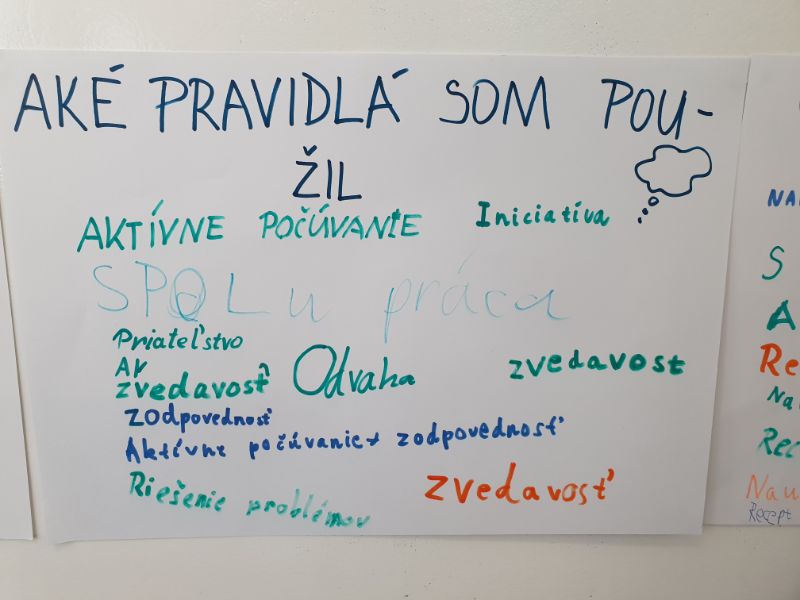 AKÉ PRAVIDLÁ SOM POU-
ŽIL
AKTÍVNE POČÚVANIE Iniciatíva
SPOLu práca
Priateľstvo
AV
zvedavosť Odvaha zvedavosť
zodpovednosť
Aktívne počúvanie+ zodpovednosť
Riešenie problémov zvedavosť
NA
S
A
Re
Na
Rec
Nau
Recept